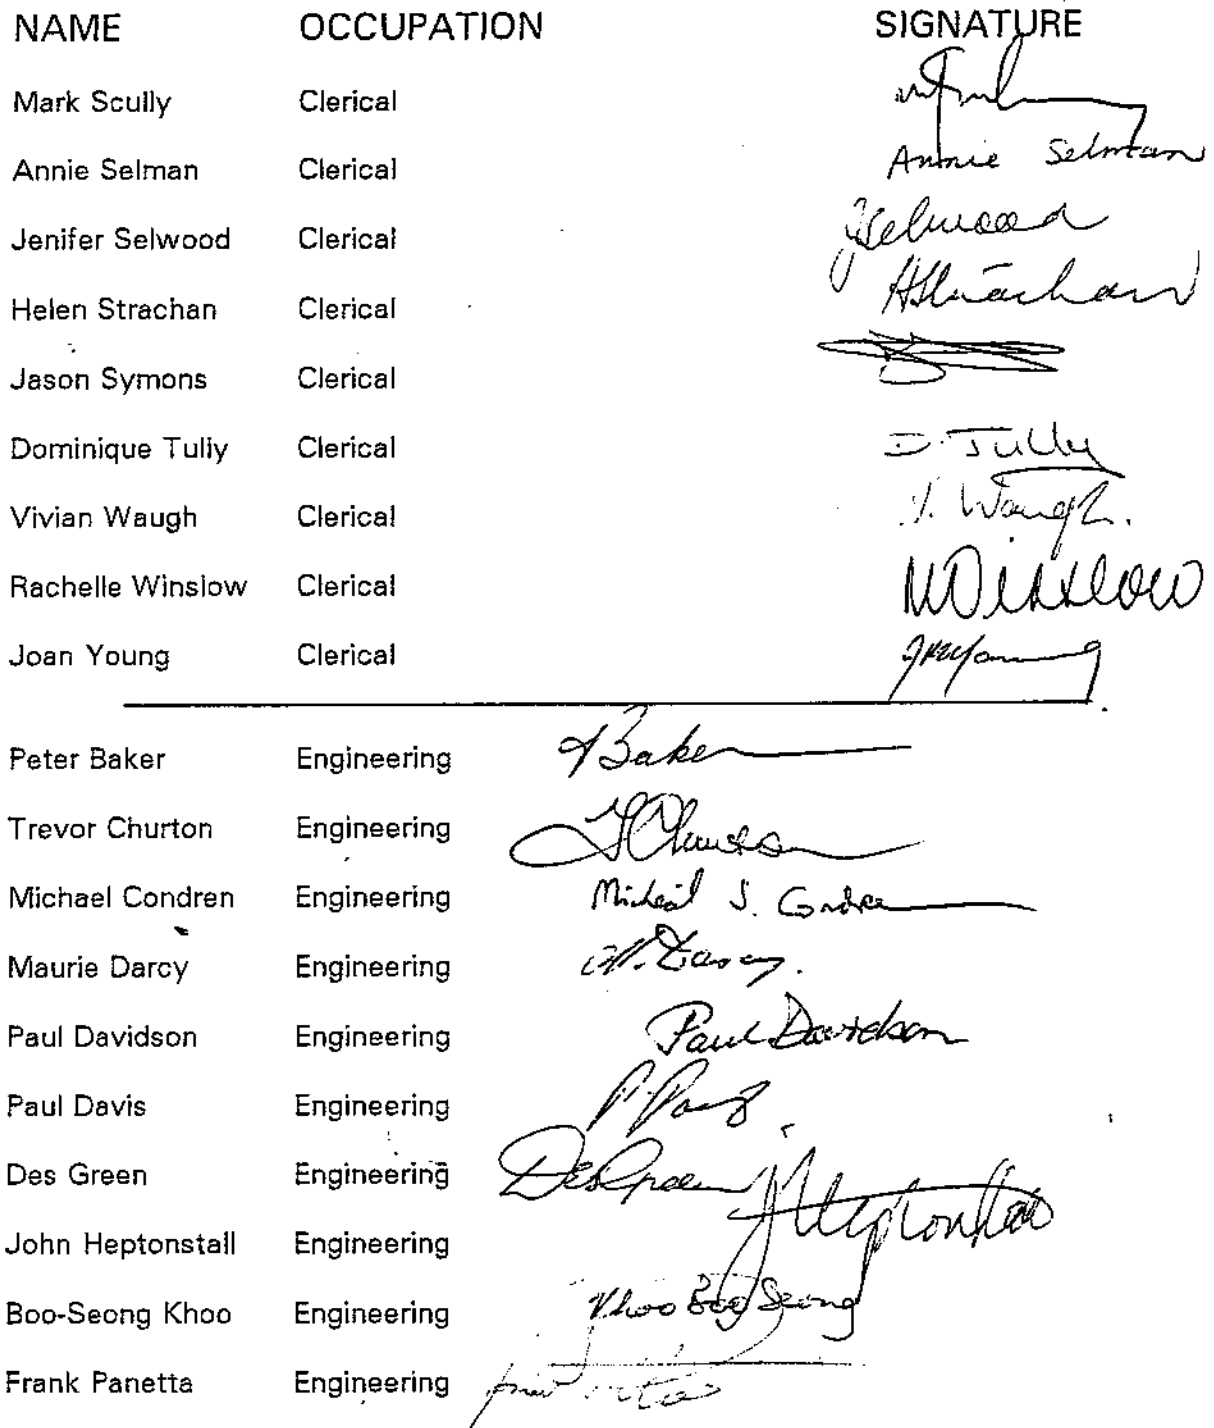 NAME OCCUPATION SIGNATURE
Mark Scully Clerical
Annie Selman Clerical Annie Selman
Jenifer Selwood Clerical JSelwood
Helen Strachan Clerical HStrachan
Jason Symons Clerical
Dominique Tully Clerical D. Tully
Vivian Waugh Clerical V. Waugh.
Rachelle Winslow Clerical Winslow
Joan Young Clerical
Peter Baker Engineering PBaker
Trevor Churton Engineering TChurton
Michael Condren Engineering Micheál J. Condren
Maurie Darcy Engineering M. Darcy.
Paul Davidson Engineering Paul Davidson
Paul Davis Engineering
Des Green Engineering Des Green
John Heptonstall Engineering J Heptonstall
Boo-Seong Khoo Engineering Khoo Boo Seong
Frank Panetta Engineering